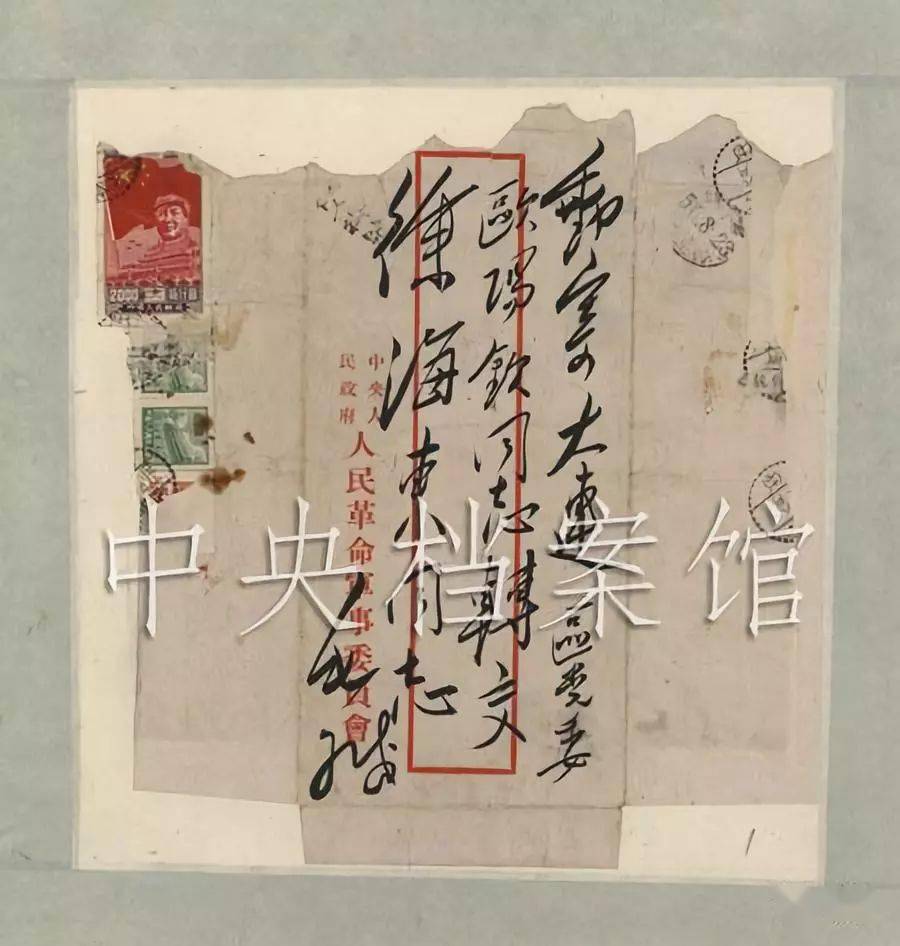 寄大連區党委
歐陽欽同志轉交
徐海東同志
毛緘
中央人
民政府
人民革命軍事委員會
2000
中央档案馆
1